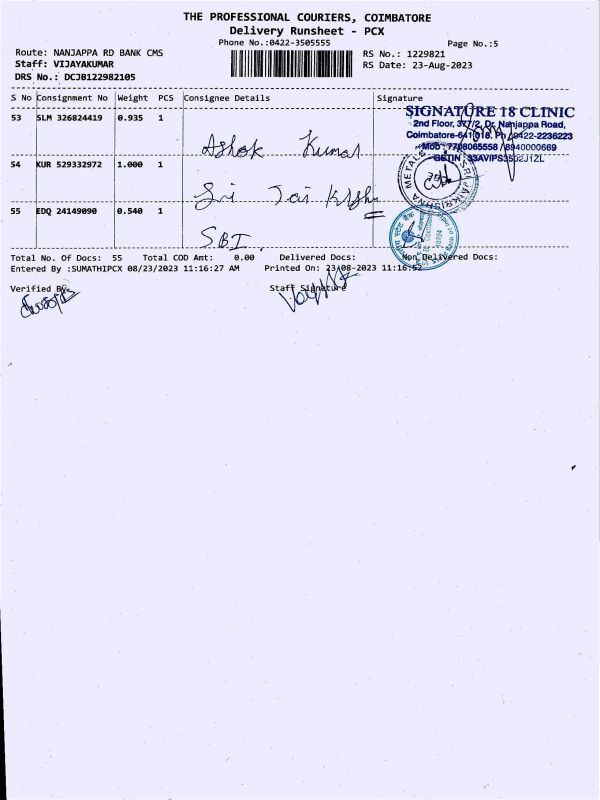 THE PROFESSIONAL COURIERS, COIMBATORE
Delivery Runsheet - PCX
Phone No.:0422-3505555
Page No.:5
Route: NANJAPPA RD BANK CMS
RS No.: 1229821
Staff: VIJAYAKUMAR
RS Date: 23-Aug-2023
DRS No.: DCJB122982105
S No Consignment No Weight PCS Consignee Details Signature
53 SLM 326824419 0.935 1
Ashok Kumar
SIGNATURE 18 CLINIC
2nd Floor, 377/2, Dr. Nanjappa Road,
Coimbatore-641 018. Ph : 0422-2236223
Mob : 7708065558 / 8940000669
GSTIN : 33AVIPS3502J1ZL
54 KUR 529332972 1.000 1
Sri Jai Krish
55 EDQ 24149090 0.540 1
SBI
Total No. Of Docs: 55 Total COD Amt: 0.00 Delivered Docs: Non Delivered Docs:
Entered By :SUMATHIPCX 08/23/2023 11:16:27 AM Printed On: 23-08-2023 11:16:52
Verified By: Staff Signature